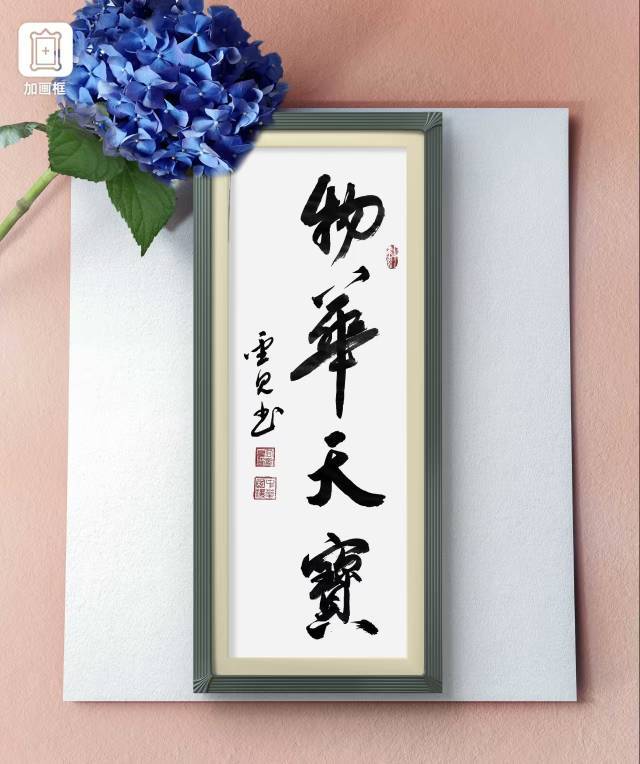 加画框
物華天寶
雲見书